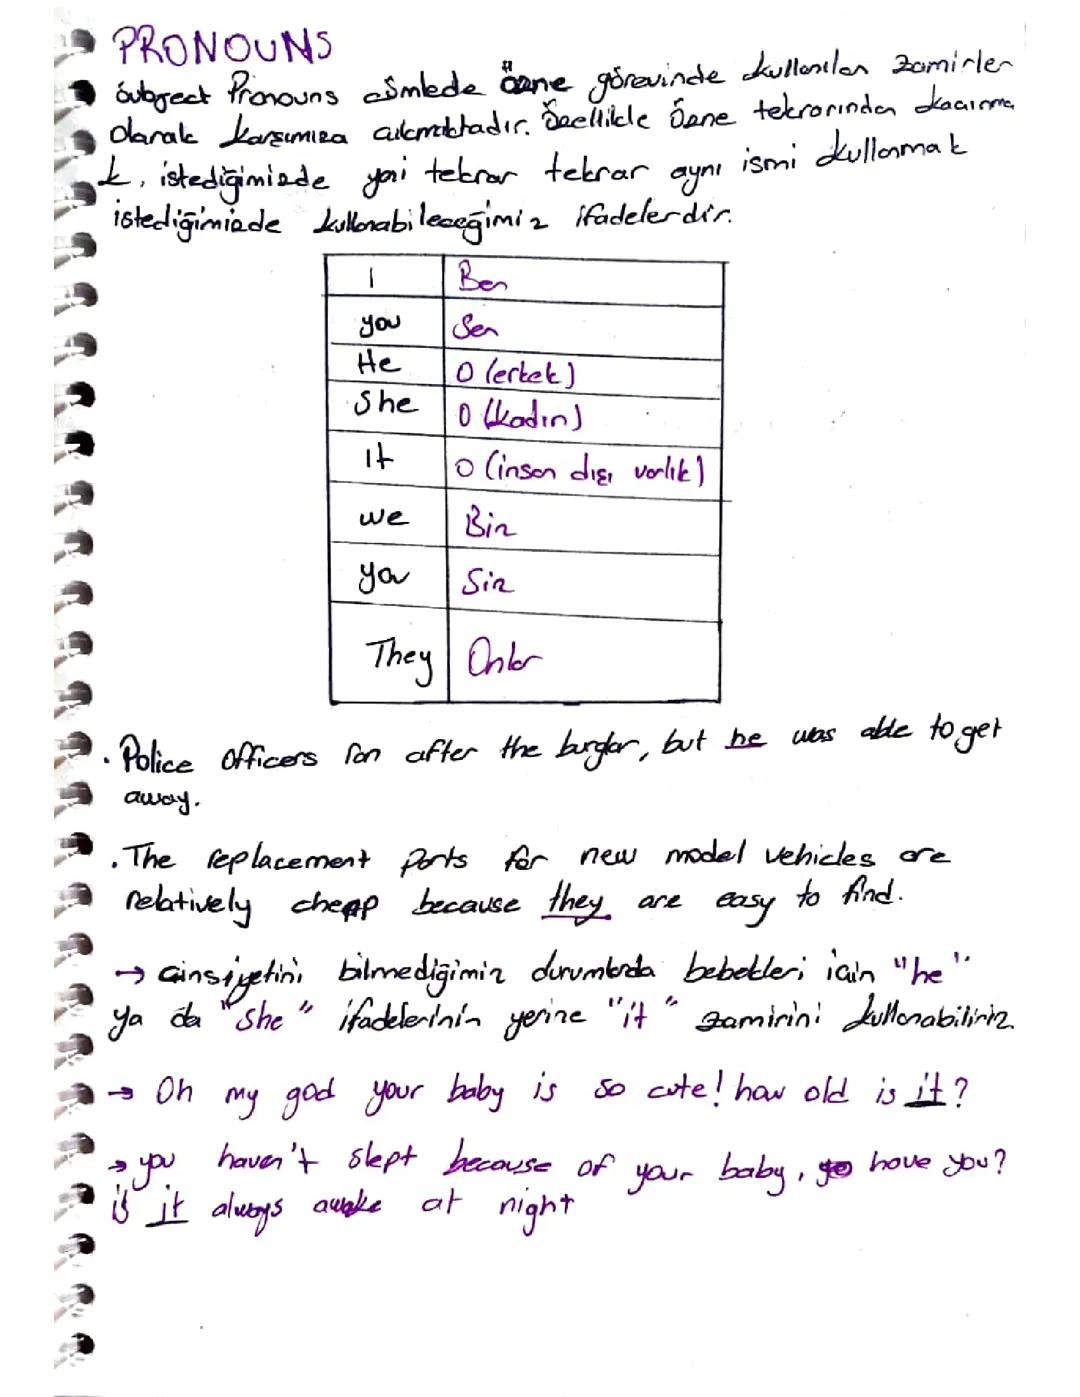 PRONOUNS
Subject Pronouns cümlede özne görevinde kullanılan zamirler
olarak karşımıza çıkmaktadır. Özellikle özne tekrarından kaçınma
k, istediğimizde yani tekrar tekrar aynı ismi kullanmak
istediğimizde kullanabileceğimiz ifadelerdir.
I Ben
you Sen
He O (erkek)
She O (kadın)
It O (insan dışı varlık)
we Biz
you Siz
They Onlar
. Police officers ran after the burglar, but he was able to get
away.
. The replacement parts for new model vehicles are
relatively cheap because they are easy to find.
→ Cinsiyetini bilmediğimiz durumlarda bebekleri için "he"
ya da "she" ifadelerinin yerine "it" zamirini kullanabiliriz.
→ Oh my god your baby is so cute! how old is it?
→ you haven't slept because of your baby, have you?
is it always awake at night